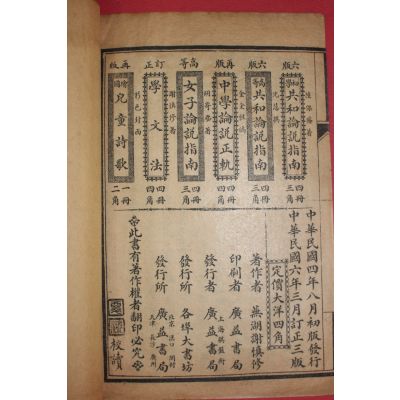 六版
初學
共和論說指南
四冊
三角
六版
高等
共和論說指南
四冊
三角
再版
中學論說正軌
四冊
四角
高等
女子論說指南
四冊
三角
訂正
謝慎修著
學文法
四冊
四角
再版
兒童詩歌
一冊
二角
中華民國四年八月初版發行
中華民國六年三月訂正三版
定價大洋四角
著作者 蕪湖謝慎修
印刷者 廣益書局
發行者 上海棋盤街 廣益書局
發行所 各埠大書坊
發行所 北京 漢口 開封 天津 長沙 廣州 廣益書局
此書有著作權者翻印必究
校讀